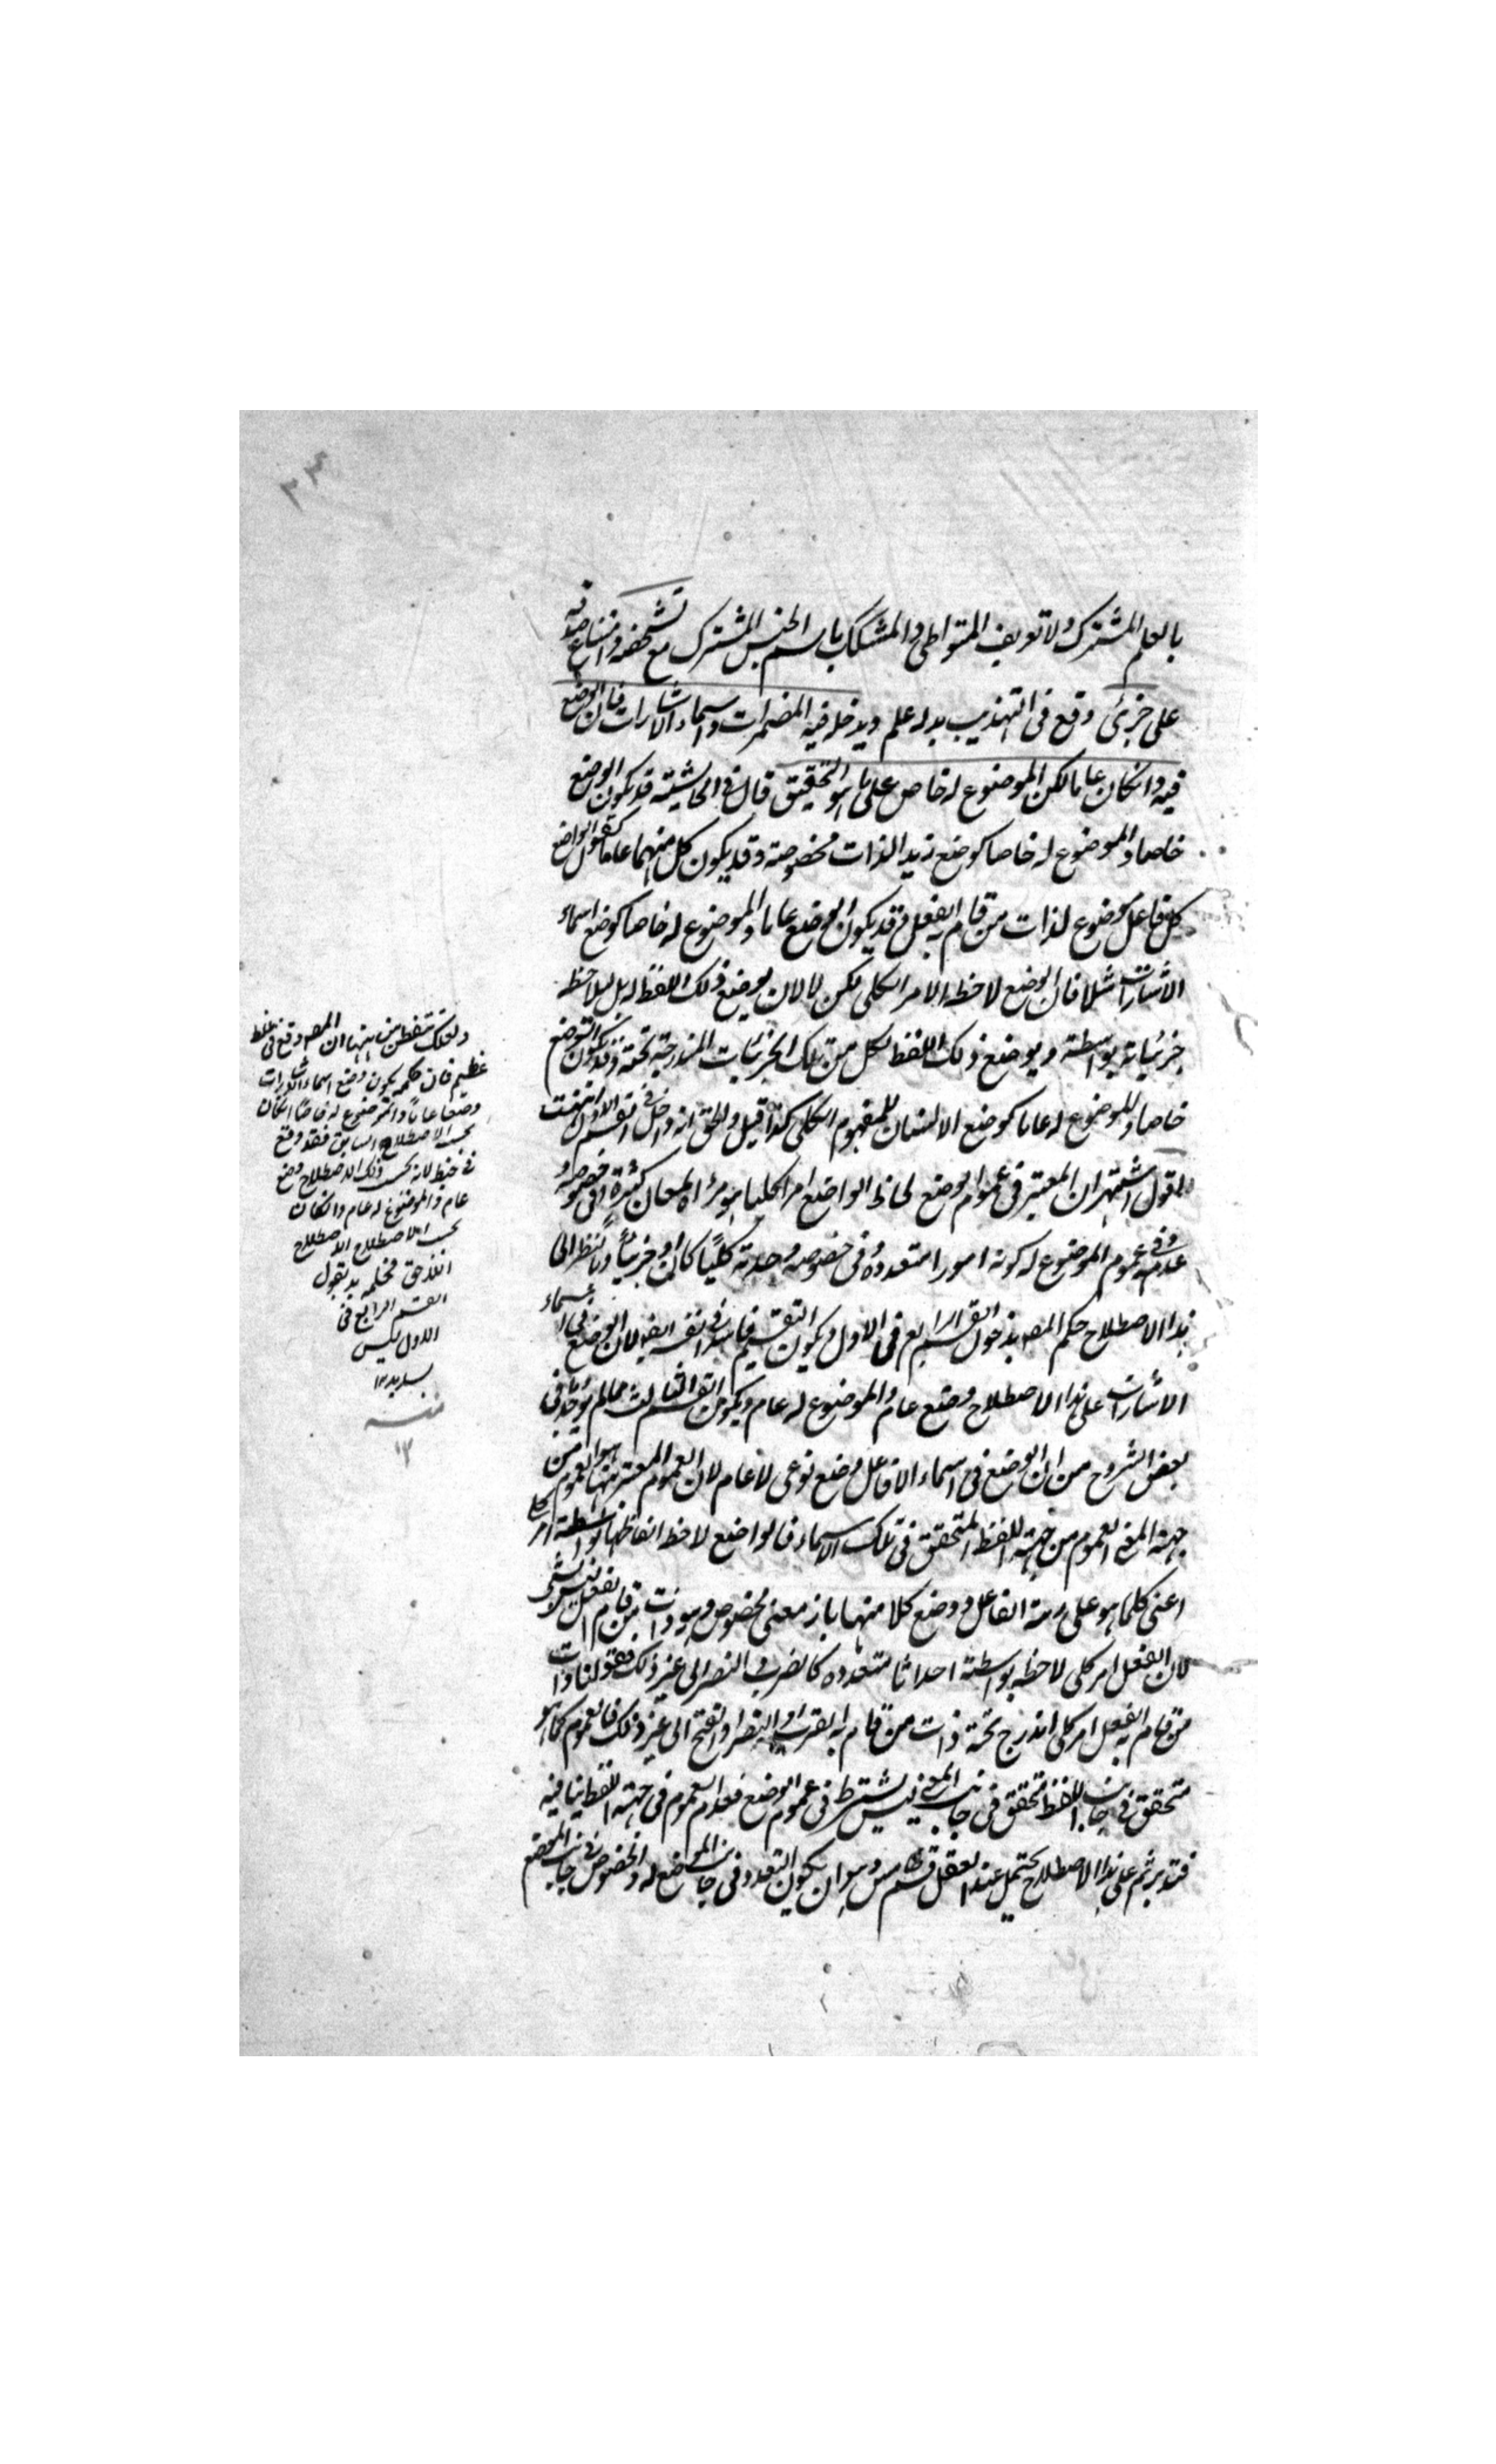 بالعلم المشترك ولا تعريف المتواطي والمشكك باسم الجنس المشترك مع تشخصه وامتناع صدقه
على جزئي وقع في التهذيب بدله علم ويدخل فيه المضمرات واسماء الاشارات فان الوضع
فيه وانكان عاما لكن الموضوع له خاص على ما هو التحقيق قال في الحاشية قد يكون الوضع
خاصا والموضوع له خاصا كوضع زيد الذات مخصوصة وقد يكون كل منهما عاما كقول الواضع
كل فاعل موضوع لذات من قام به الفعل وقد يكون الوضع عاما والموضوع له خاصا كوضع اسماء
الاشارات مثلا فان الوضع لاحظه الامر الكلي لكن لا لان يوضع ذلك اللفظ له بل ليلاحظ
جزئياته بواسطة ويوضع ذلك اللفظ لكل من تلك الجزئيات المندرجة تحته وقد يكون الوضع
خاصا والموضوع له عاما كوضع الانسان للمفهوم الكلي كذا قيل والحق انه داخل في القسم الاول انتهت
اقول اشتهر ان المعتبر في عموم الوضع لحاظ الواضع امرا كليا هو مرأة لمعان كثيرة وفي خصوصه
عدمه وفي عموم الموضوع له كونه امورا متعددة وفي خصوصه وحدته كليا كان او جزئيا وبالنظر الى
هذا الاصطلاح حكم المصـ بدخول القسم الرابع في الاول ويكون التقسيم فاسدا في نفسه ايضا لان الوضع في اسماء
الاشارات على هذا الاصطلاح وضع عام والموضوع له عام ويكون القسم الثالث مما لم يوجد في
بعض الشروح من ان الوضع في اسماء الافاعل وضع نوعي لا عام لان العموم المعتبر ههنا هو العموم من
جهة المعنى العموم من جهة اللفظ المتحقق في تلك الاسماء فالواضع لاحظ الفاظها بواسطة امر كلي
اعني كلما هو على زنة الفاعل ووضع كلا منها بازاء معنى مخصوص وهو ذات من قام به الفعل ليس بشيء
لان الفعل امر كلي لاحظ بواسطة احداثا متعددة كالضرب والنصر الى غير ذلك فقولنا ذات
من قام به الفعل امر كلي اندرج تحته ذات من قام به الضرب او النصر او الفتح الى غير ذلك فالعموم كما هو
متحقق في جانب اللفظ متحقق في جانب المعنى ليس يشترط في عموم الوضع فعدم العموم في جهة اللفظ ينافيه
فتدبر ثم على هذا الاصطلاح يحتمل عند العقل قسم خامس وهو ان يكون التعدد في جانب الموضع له والخصوص في جانب الوضع
ولعلك تتفطن من ههنا ان المصـ وقع في غلط
عظيم فان حكمه بكون وضع اسماء الاشارات
وضعا عاما والموضوع له خاصا انكان
بحسب الاصطلاح السابق فقد وقع
في خبط لانه بحسب ذلك الاصطلاح وضع
عام والموضوع له عام وانكان
بحسب الاصطلاح
فحكمه بدخول
القسم الرابع في
الاول ليس
بسديد ١٢
منه
١٢